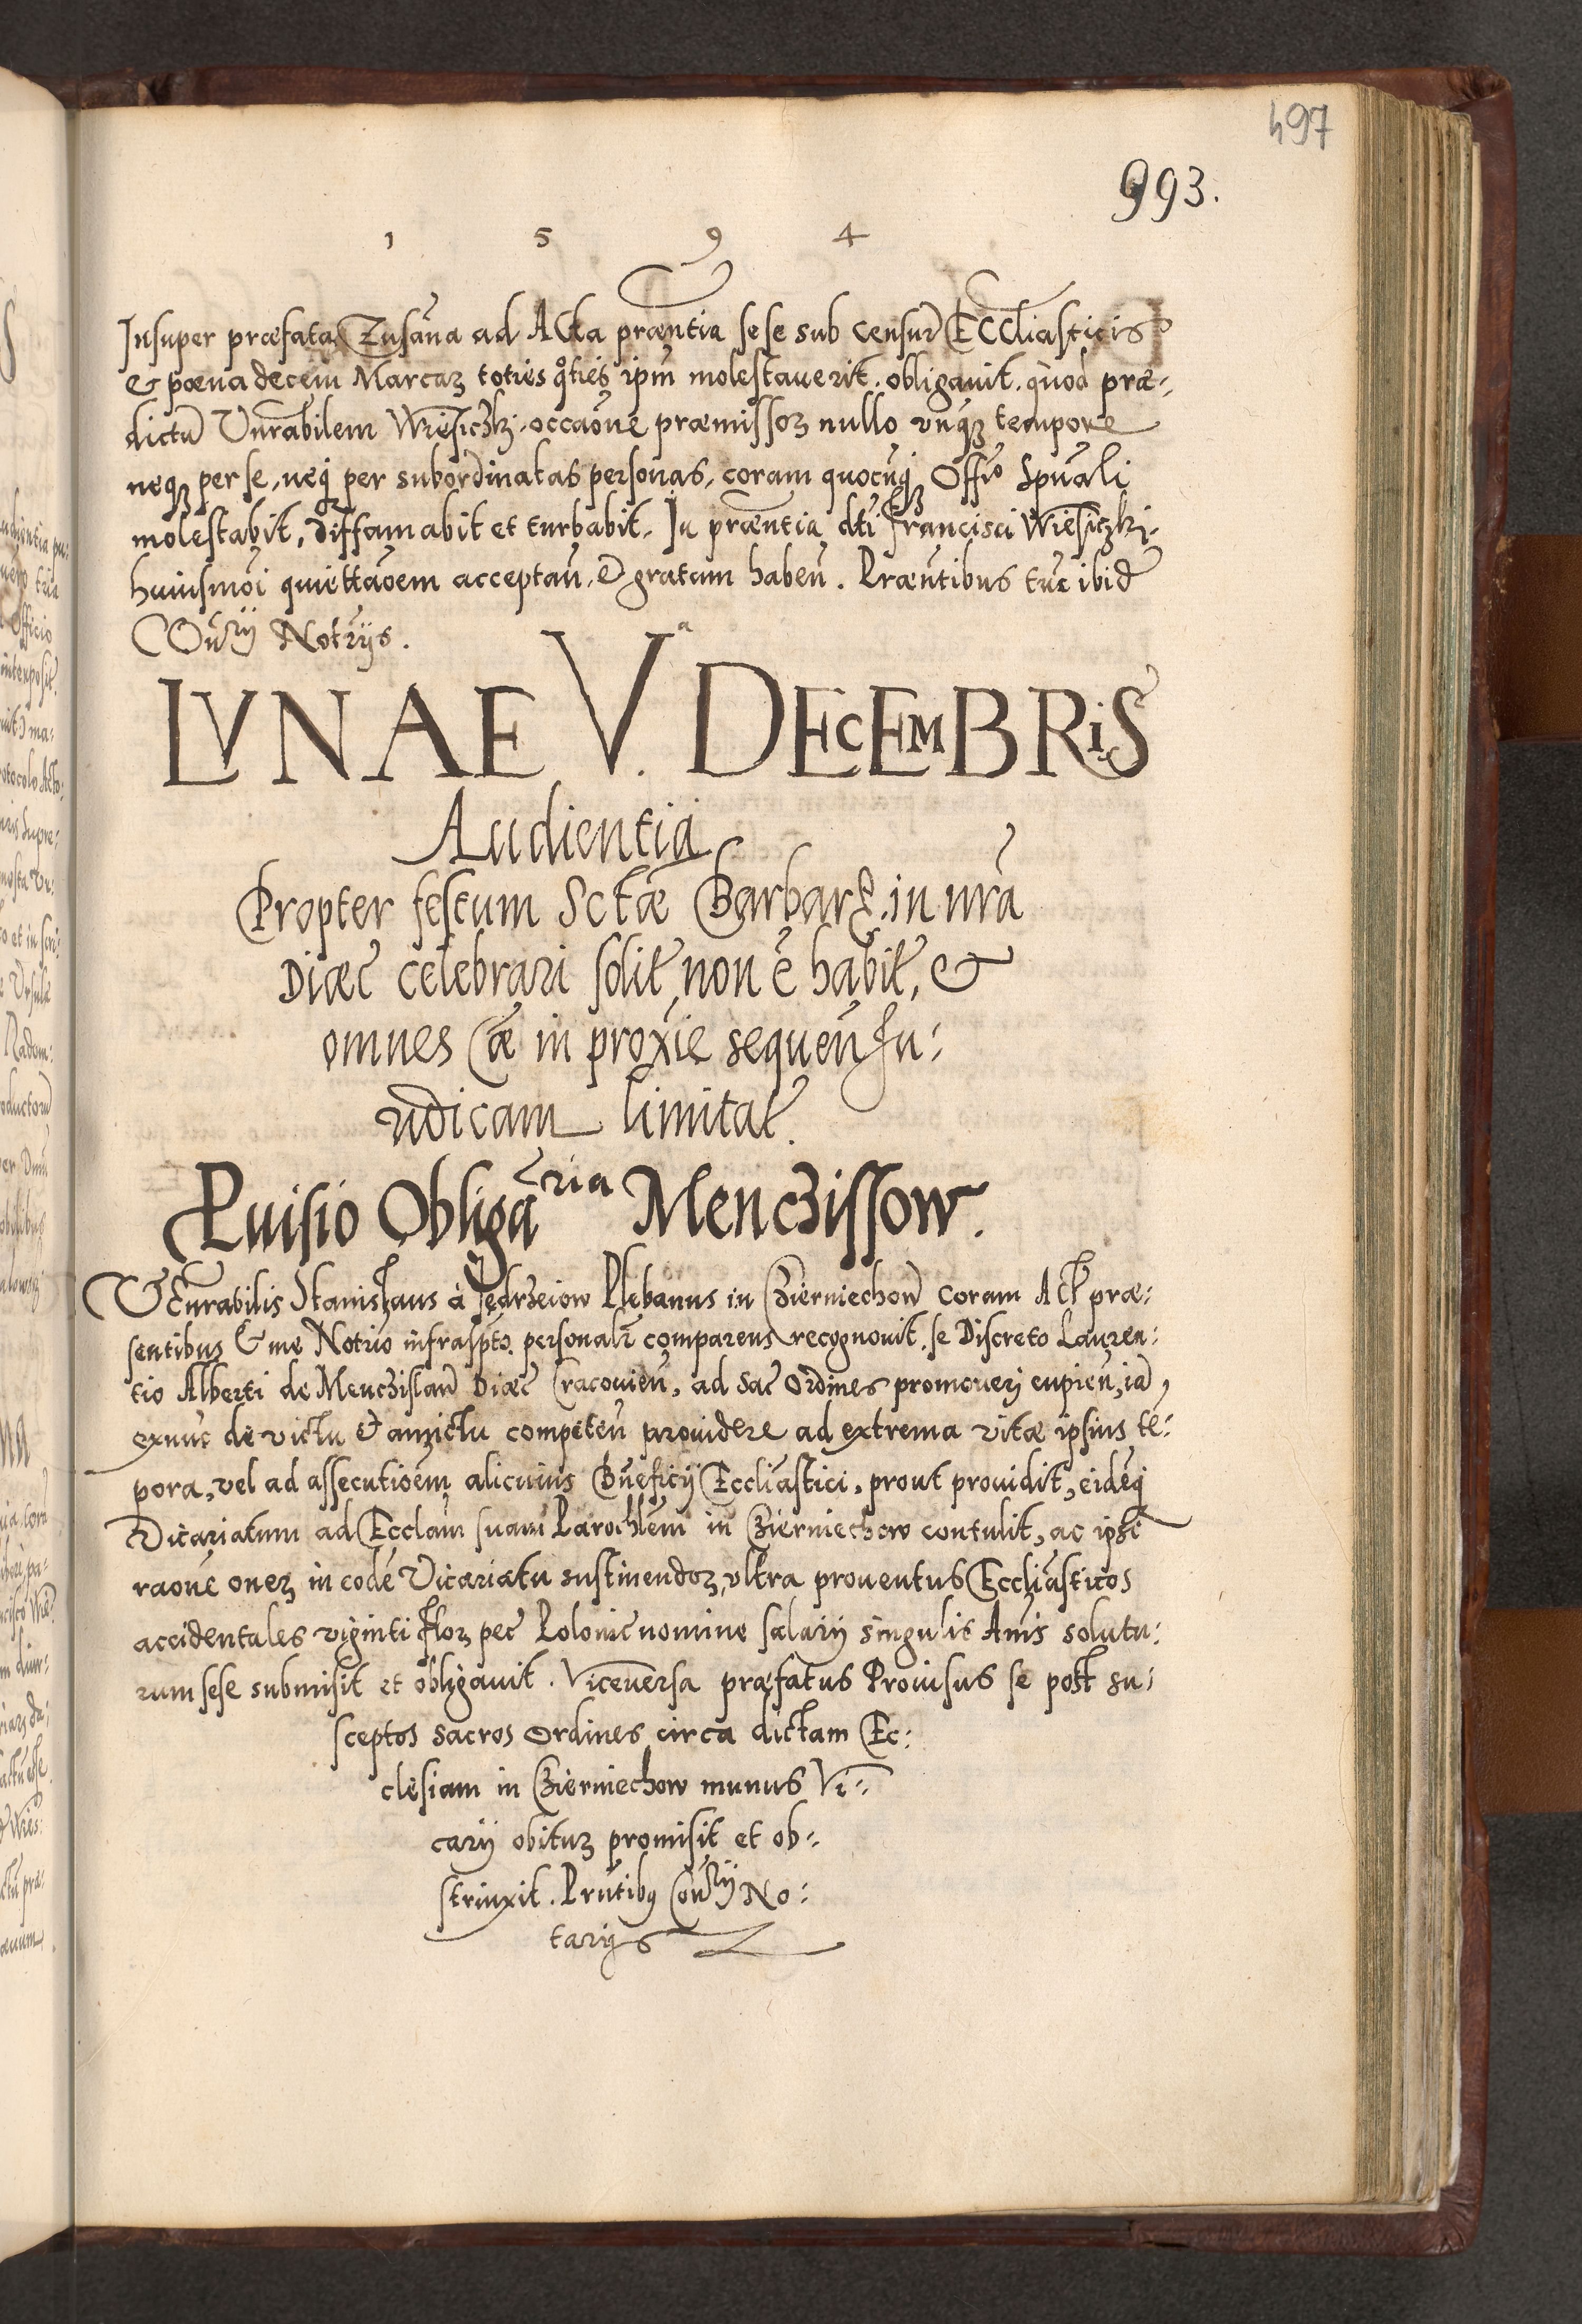 497
993.
1 5 9 4
Insuper præfata Zusãna ad Acta præntia sese sub censur̃ Eccliasticis
& pœna decem Marcaꝝ toties qͦties ipm̃ molestauerit. obligauit. quod præ-
dictũ Vnr̃abilem Wiesiczki occaõne præmissoꝝ nullo vnqꝫ tempore
neqꝫ per se, neqꝫ per subordinatas personas, coram quocũqꝫ Offõ Spũali
molestabit, diffamabit et turbabit. In præntia dti Francisci Wiesiczki.
huiusmõi quiettaõem acceptan̄, & gratam haben̄. Præntibus tũc ibid̃
Con̄rij Notrijs.
LVNAE V.ᵃ DECEMBRIS
Audientia
Propter festum Sctæ Barbarę in nr̃a
Diæc̃ celebrari solit̃ non ẽ habit̃, &
omnes Cæ in proxĩe sequen̄ Iu:
ridicam limitat̃.
Puisio Obligãria Menczissow.
VEnrabilis Stanislaus à Jędrzeiow Plebanus in Czierniechow coram Act̃ præ:
sentibus & me Notrĩo infraspt̃o personalr̃ comparens recognouit, se Discreto Lauren:
tio Alberti de Menczislaw Diæc̃ Cracouien̄, ad sac̃ Ordines promoueri cupien̄, iã
exnũc de victu & amictu competen̄ prouidere ad extrema vitæ ipsius tẽ:
pora, vel ad assecutioẽm alicuius Bn̄eficij Eccliastici, prout prouidit, eidẽqꝫ
Vicariatum ad Ecclam̃ suam Parochlẽm in Czierniechow contulit, ac ipsi
raõne oneꝝ in eodẽ Vicariatu sustinendoꝝ, vltra prouentus Eccliãsticos
accidentales viginti floꝝ pec̃ Polonic̃ nomine salarij singulis Añis solutu:
rum sese submisit et obligauit. Viceuersa præfatus Prouisus se post su:
sceptos sacros Ordines circa dictam Ec:
clesiam in Czierniechow munus Vi:
carij obituꝝ promisit et ob:
strinxit. Prn̄tibꝰ Con̄rij No:
tarijs